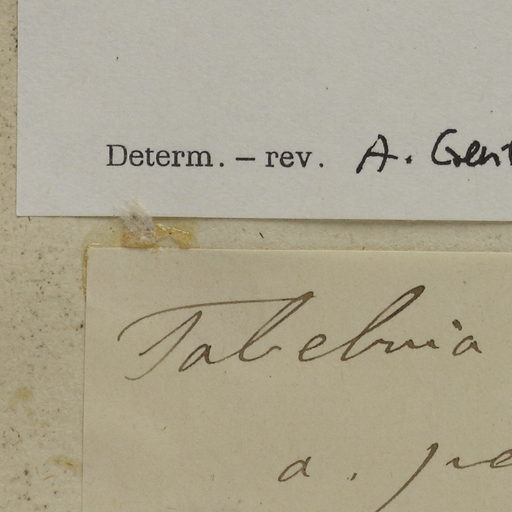 Determ. – rev. A. Gent
Tabebuia
a.